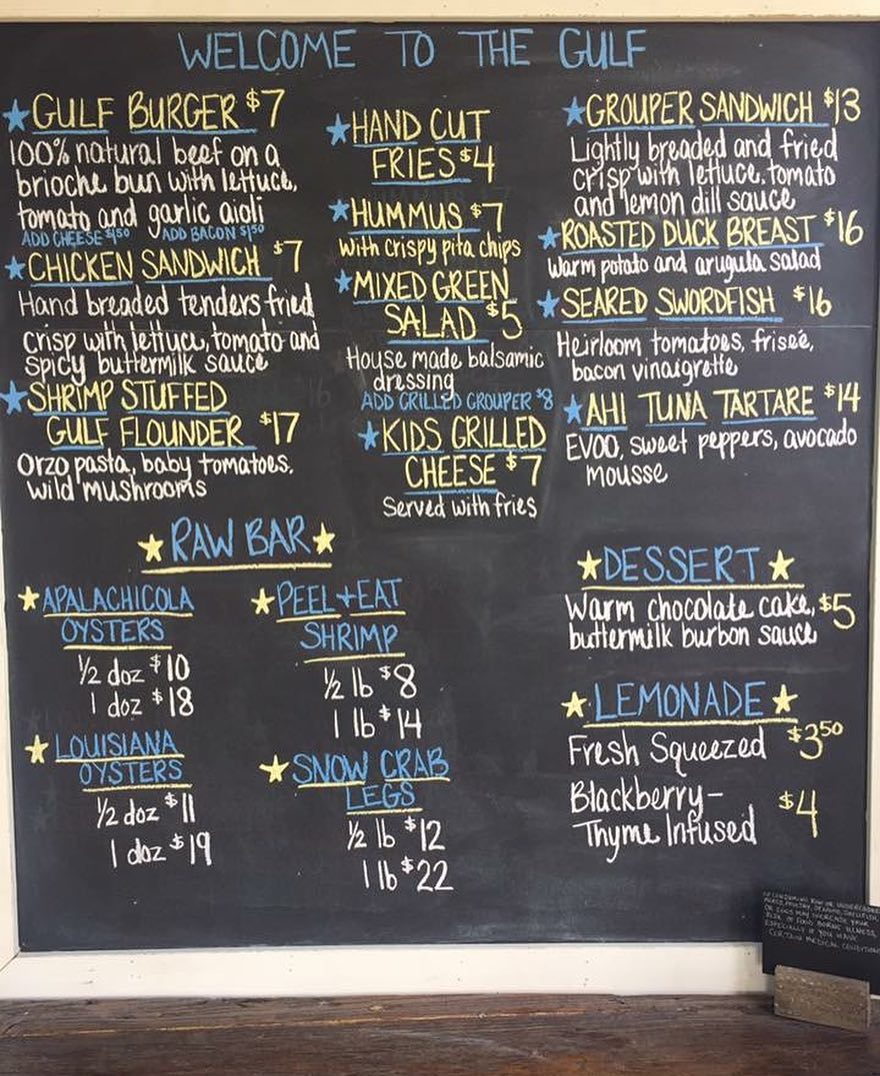 WELCOME TO THE GULF
★GULF BURGER $7
100% natural beef on a
brioche bun with lettuce,
tomato and garlic aioli
ADD CHEESE $1.50 ADD BACON $1.50
★CHICKEN SANDWICH $7
Hand breaded tenders fried
crisp with lettuce, tomato and
spicy buttermilk sauce
★SHRIMP STUFFED
GULF FLOUNDER $17
Orzo pasta, baby tomatoes,
wild mushrooms
★HAND CUT
FRIES $4
★HUMMUS $7
with crispy pita chips
★MIXED GREEN
SALAD $5
House made balsamic
dressing
ADD GRILLED GROUPER $8
★KIDS GRILLED
CHEESE $7
Served with fries
★GROUPER SANDWICH $13
Lightly breaded and fried
crisp with lettuce, tomato
and lemon dill sauce
★ROASTED DUCK BREAST $16
Warm potato and arugula salad
★SEARED SWORDFISH $16
Heirloom tomatoes, friseé,
bacon vinaigrette
★AHI TUNA TARTARE $14
EVOO, sweet peppers, avocado
mousse
★RAW BAR★
★APALACHICOLA
OYSTERS
½ doz $10
1 doz $18
★LOUISIANA
OYSTERS
½ doz $11
1 doz $19
★PEEL+EAT
SHRIMP
½ lb $8
1 lb $14
★SNOW CRAB
LEGS
½ lb $12
1 lb $22
★DESSERT★
Warm chocolate cake, $5
buttermilk burbon sauce
★LEMONADE★
Fresh Squeezed $3.50
Blackberry- $4
Thyme Infused
CONSUMING RAW OR UNDERCOOKED
MEATS, POULTRY, SEAFOOD, SHELLFISH,
OR EGGS MAY INCREASE YOUR
RISK OF FOOD BORNE ILLNESS,
ESPECIALLY IF YOU HAVE
CERTAIN MEDICAL CONDITIONS